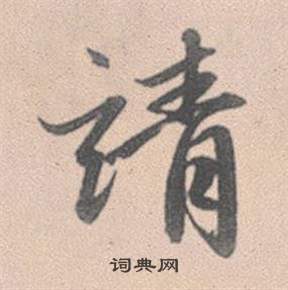 請
词典网